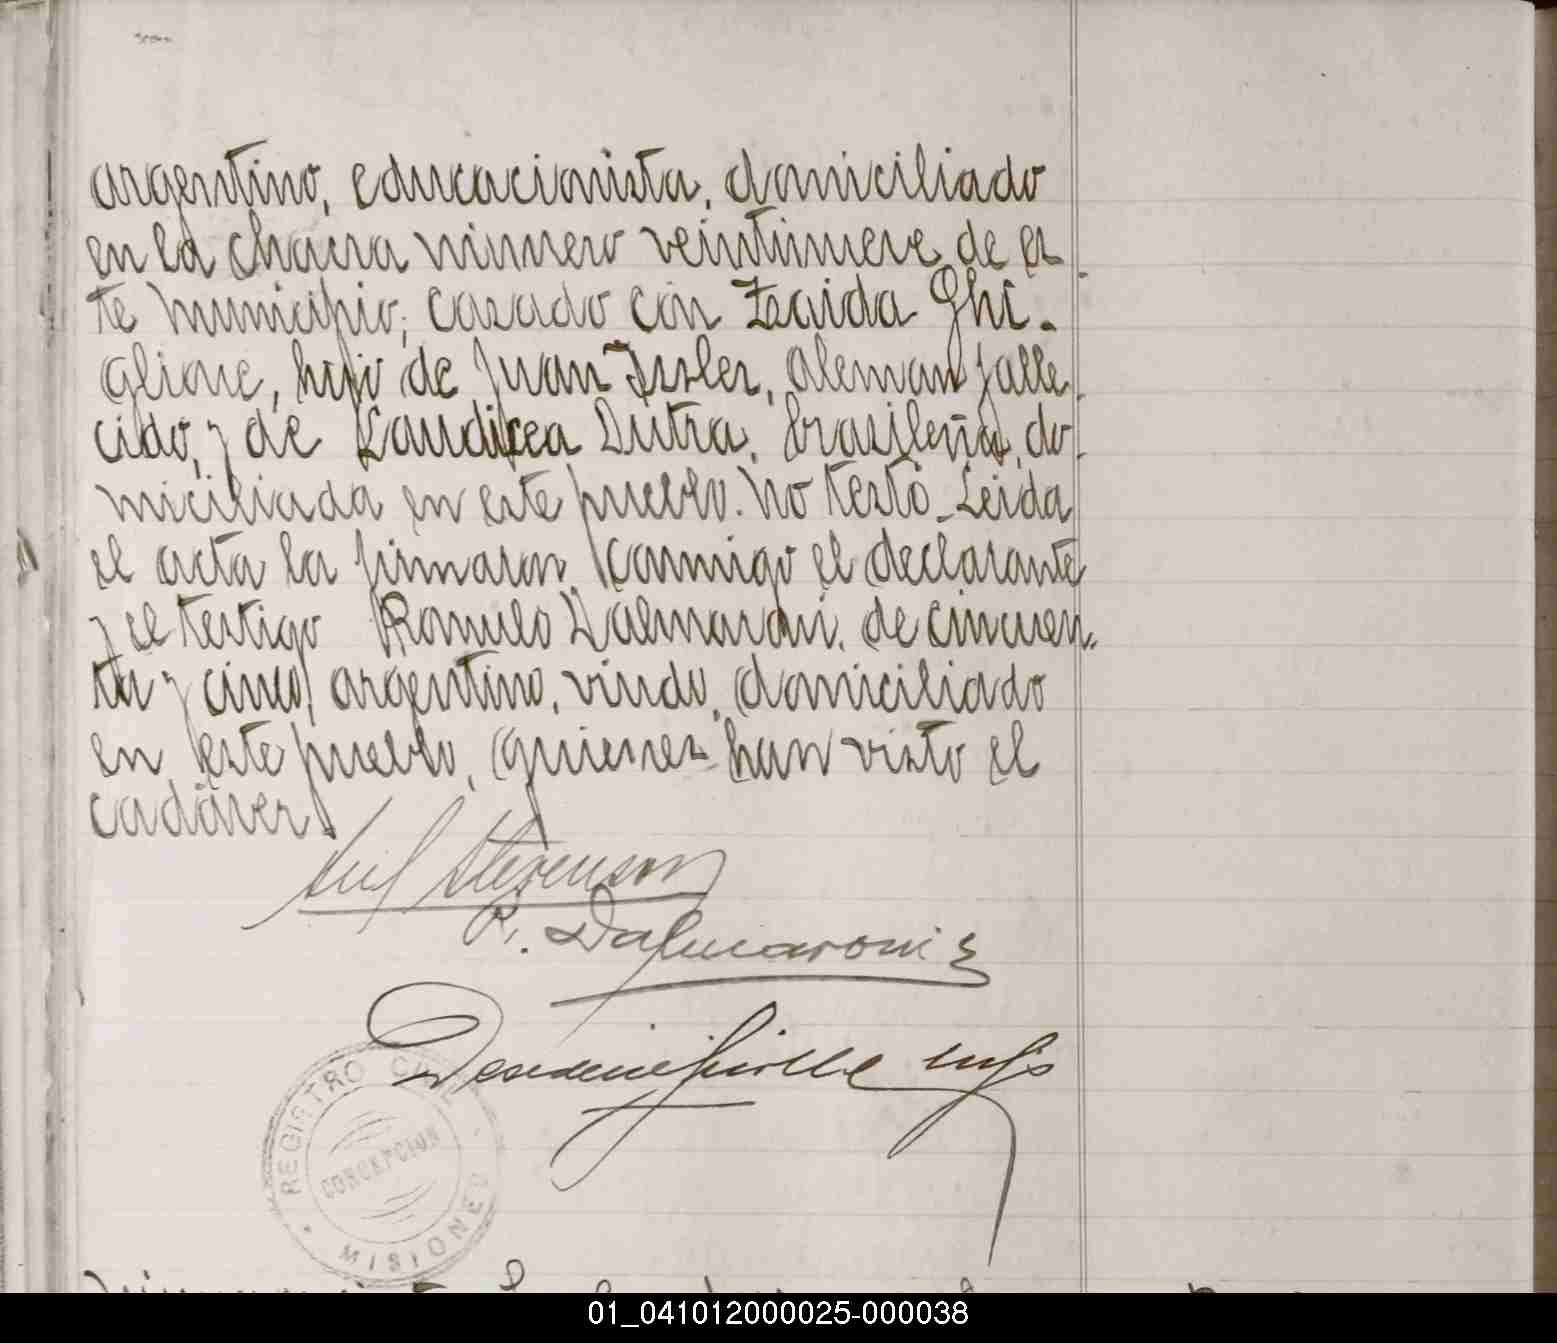 argentino, educacionista, domiciliado
en la chacra número veintinueve de es
te municipio, casado con Zaida Ghi-
glione, hijo de Juan Issler, aleman falle
cido, y de Laudicea Dutra, brasileña, do
miciliada en este pueblo. No testó. Leida
el acta la firmaron conmigo el declarante
y el testigo Romulo Dalmaroni, de cincuen
ta y cinco, argentino, viudo, domiciliado
en este pueblo, quienes han visto el
cadáver.
Stevenson
R. Dalmaroni
REGISTRO CIVIL
CONCEPCION
MISIONES
01_041012000025-000038